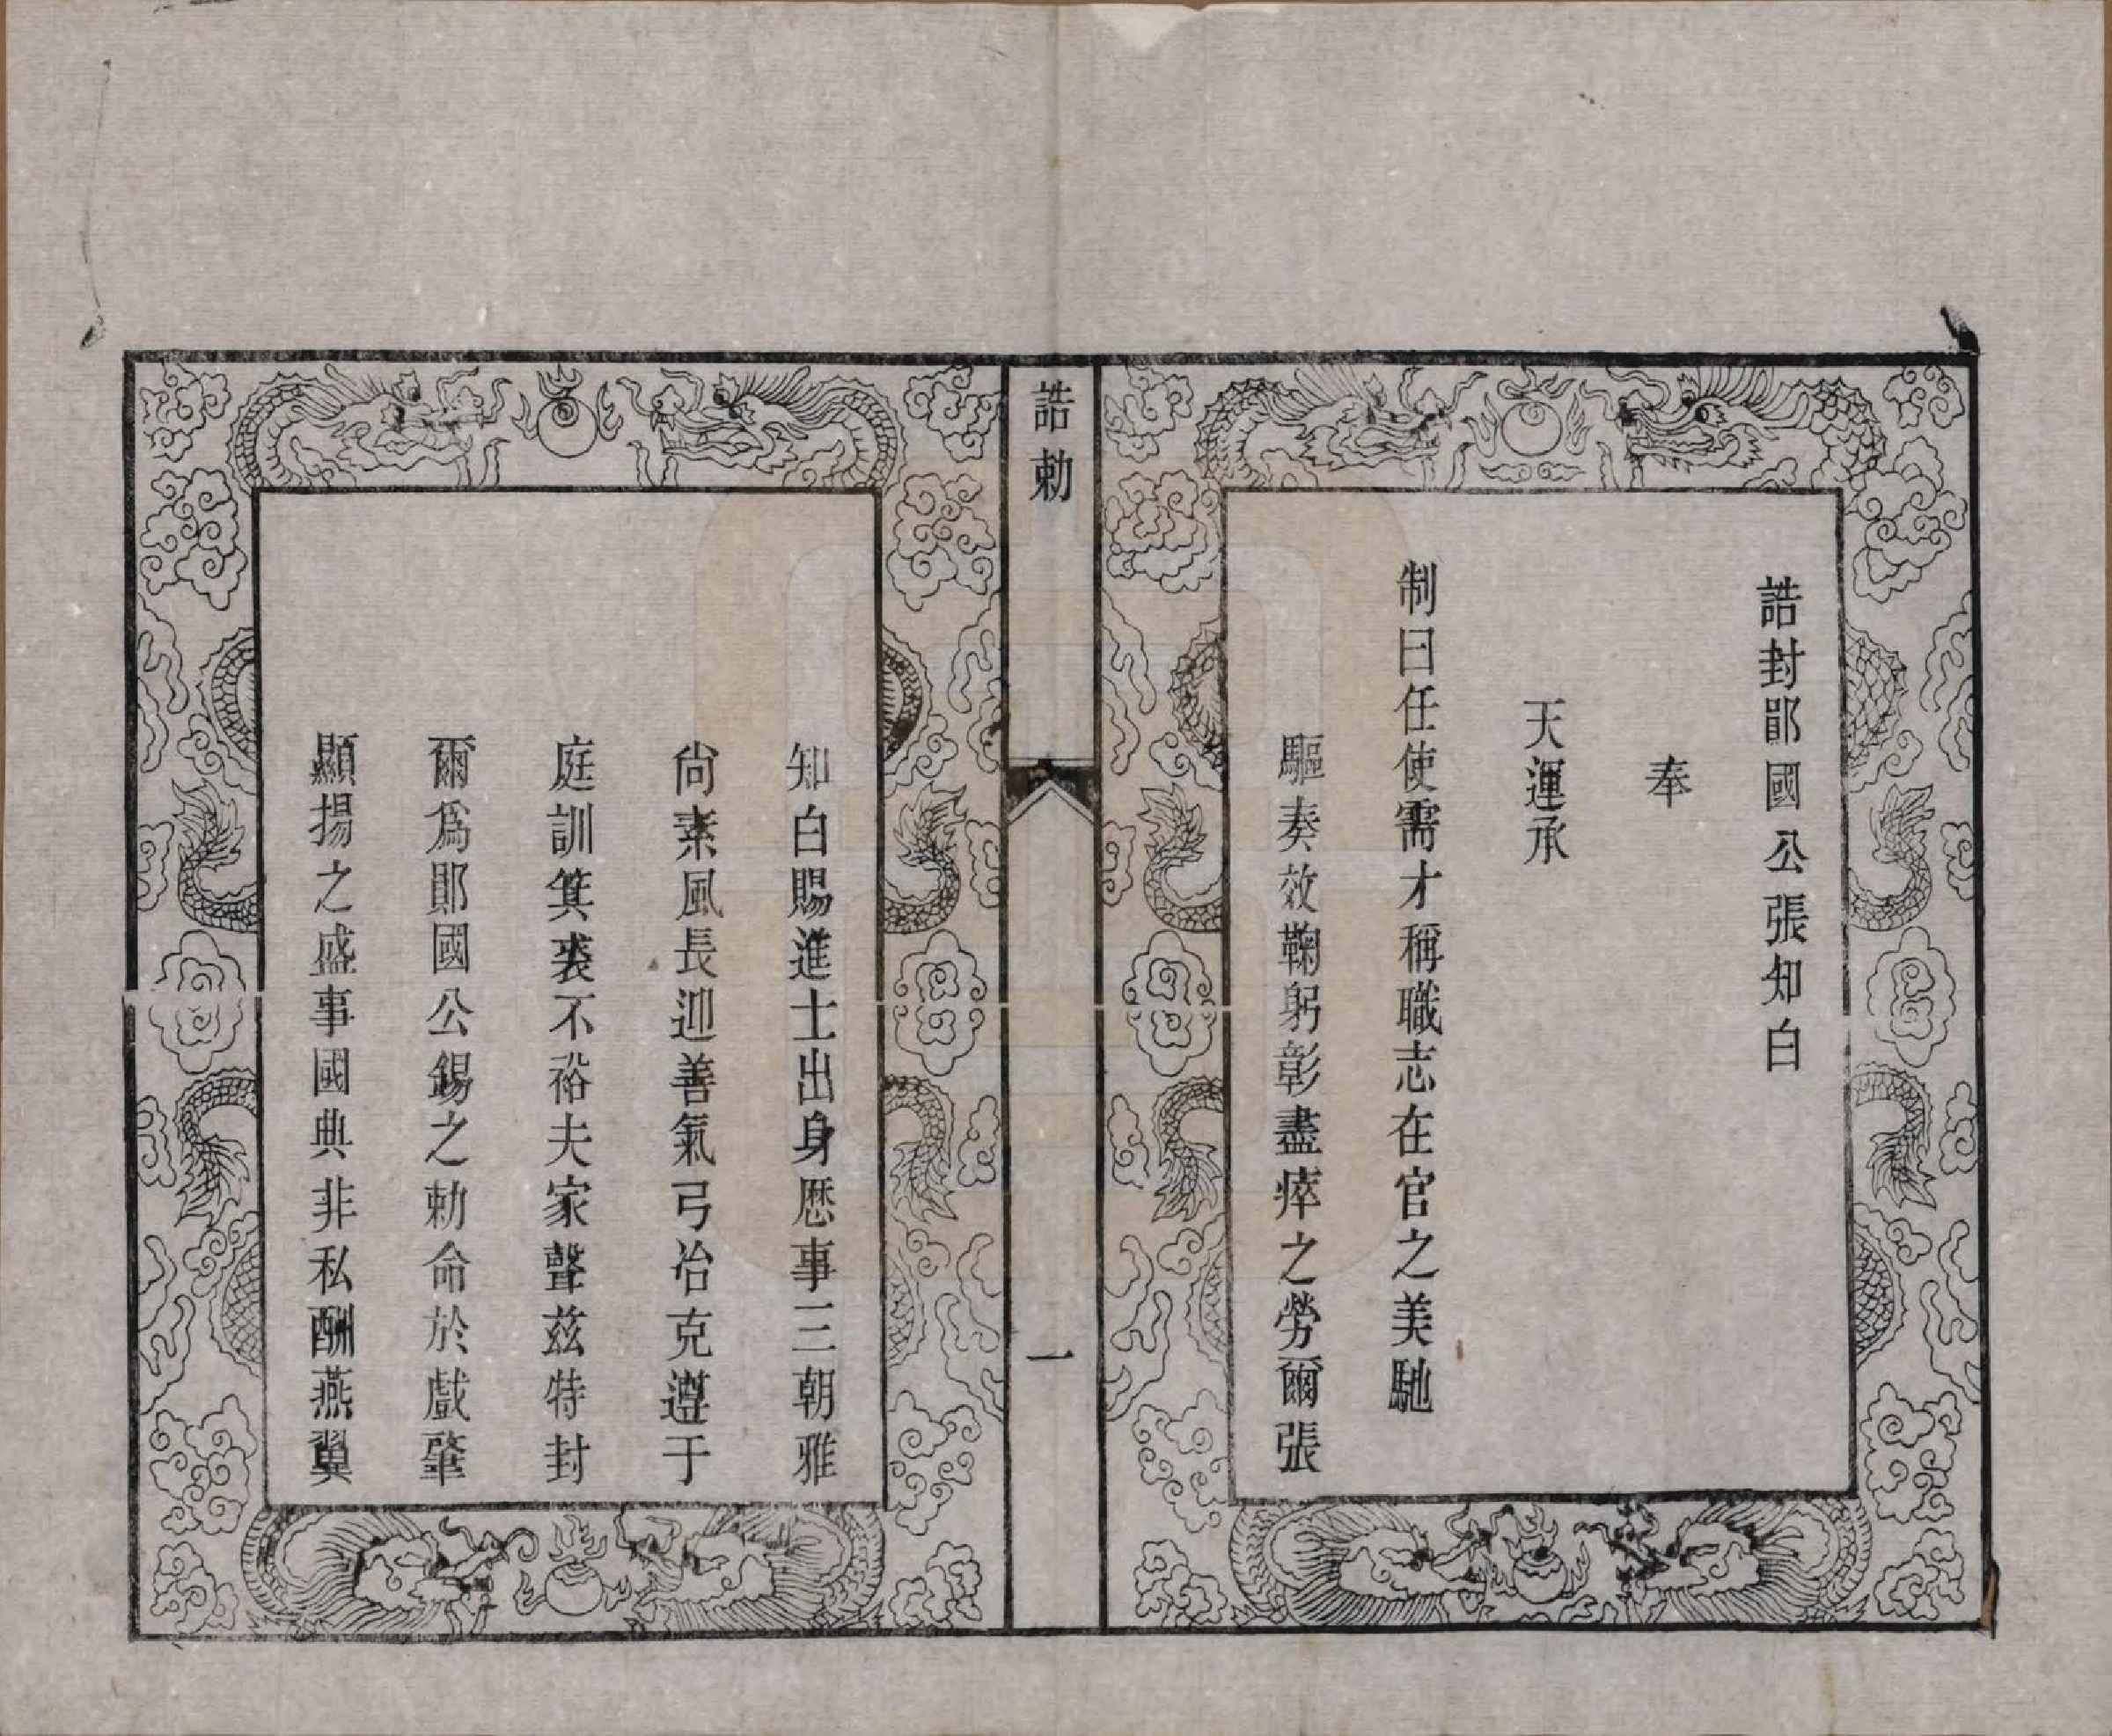 誥封鄖國公張知白
奉
天運承
制曰任使需才稱職志在官之美馳
驅奏效鞠躬彰盡瘁之勞爾張
誥勅
一
知白賜進士出身歷事三朝雅
尙素風長迎善氣弓冶克遵于
庭訓箕裘不裕夫家聲茲特封
爾爲鄖國公錫之勅命於戲肇
顯揚之盛事國典非私酬燕翼